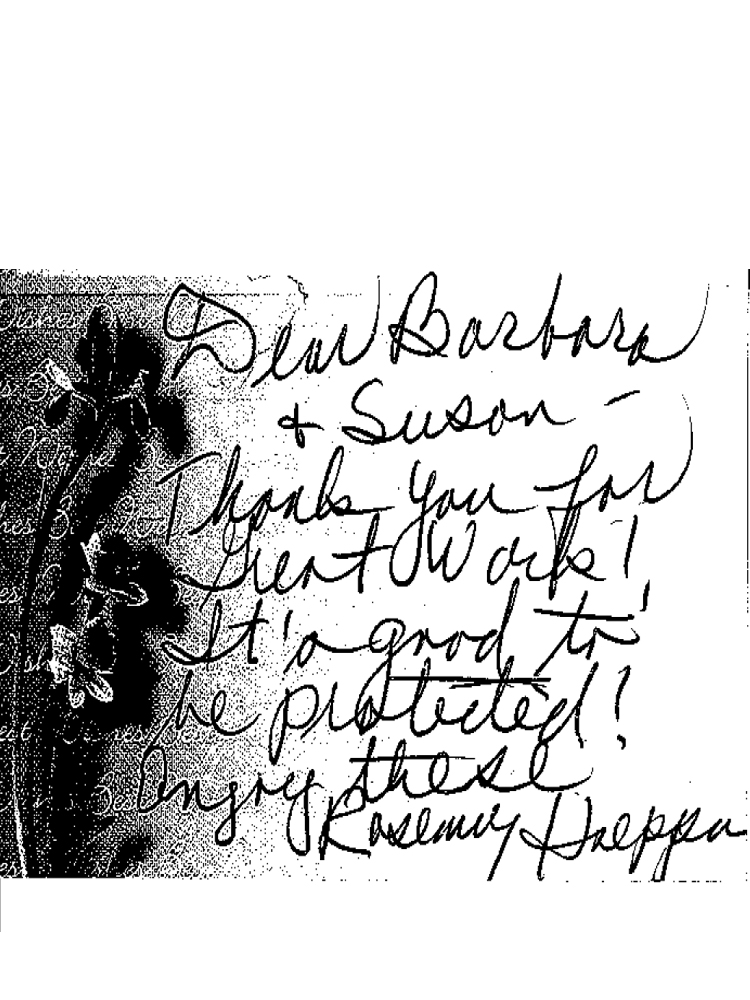 Dear Barbara
& Susan -
Thank you for
Great Work!
It's good to
be protected!
Enjoy these
Rosemary